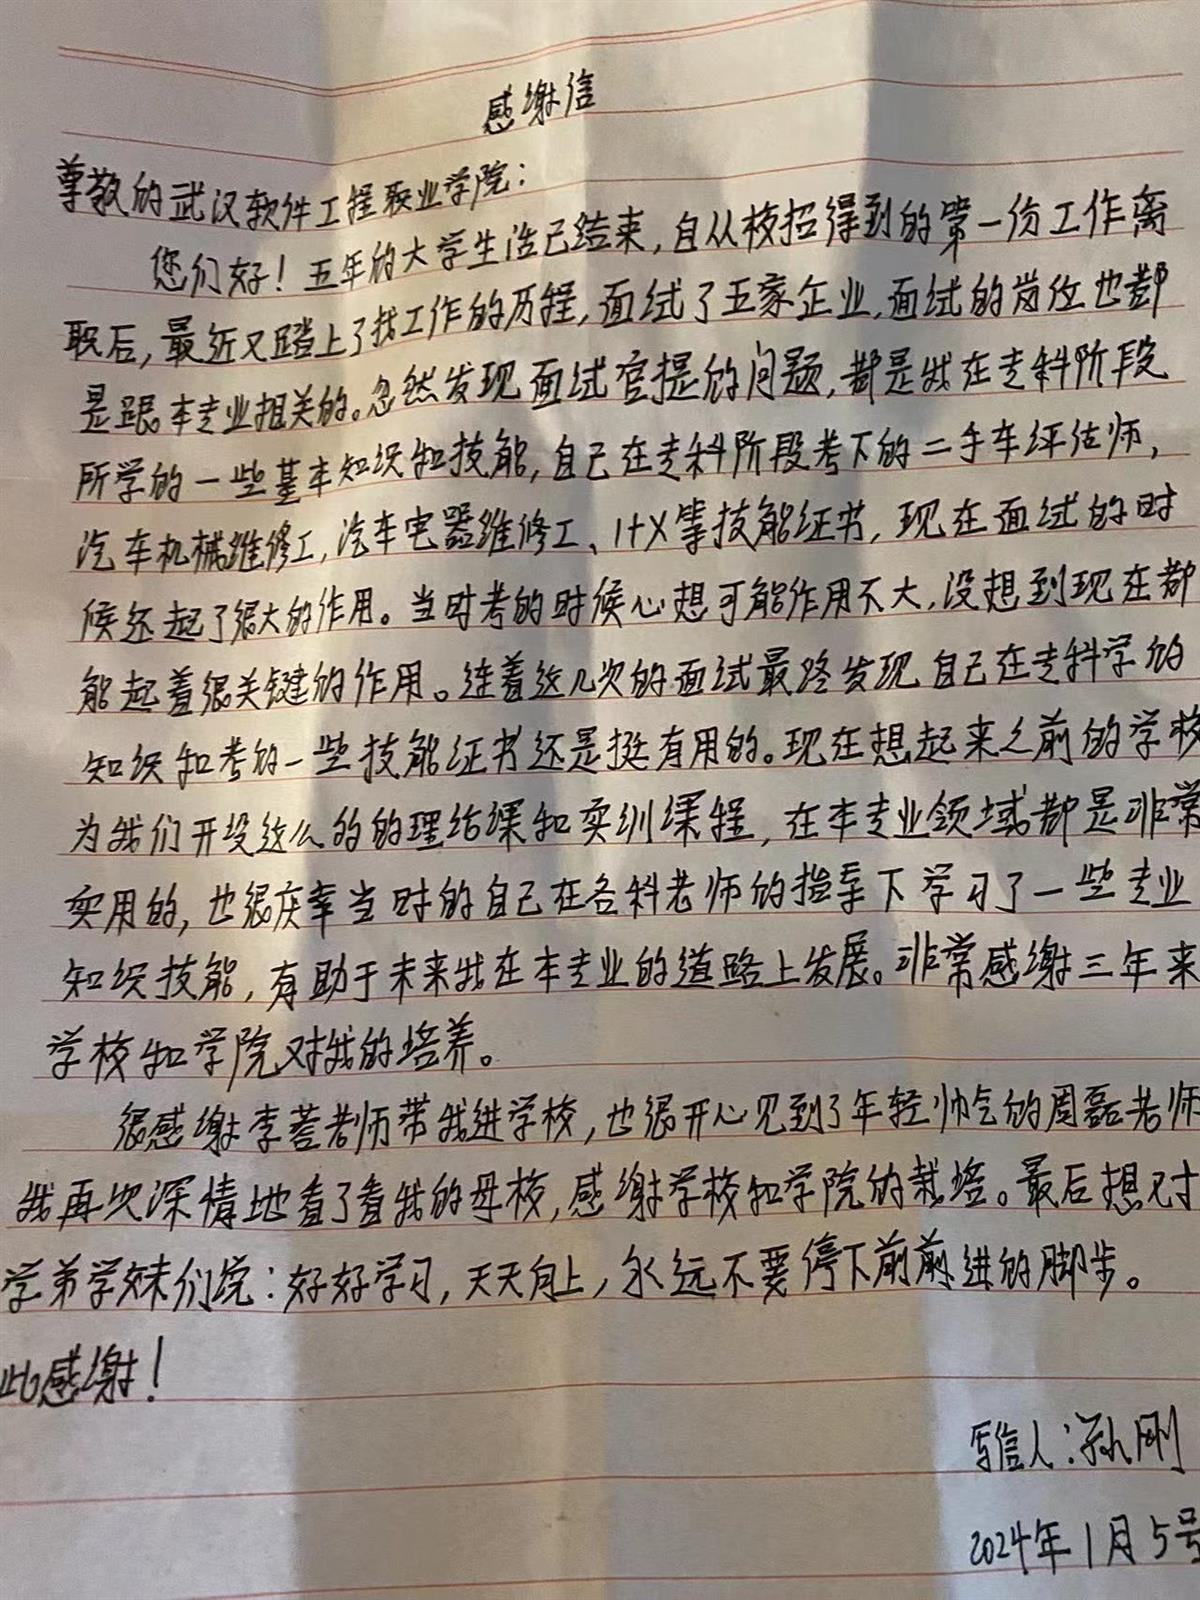 感谢信
尊敬的武汉软件工程职业学院：
您们好！五年的大学生活已结束，自从校招得到的第一份工作离
职后，最近又踏上了找工作的历程，面试了五家企业，面试的岗位也都
是跟本专业相关的。忽然发现面试官提的问题，都是我在专科阶段
所学的一些基本知识和技能，自己在专科阶段考下的二手车评估师，
汽车机械维修工，汽车电器维修工、1+X等技能证书，现在面试的时
候还起了很大的作用。当时考的时候心想可能作用不大，没想到现在都
能起着很关键的作用。连着这几次的面试最终发现自己在专科学的
知识和考的一些技能证书还是挺有用的。现在想起来之前的学校
为我们开设这么的的理论课和实训课程，在本专业领域都是非常
实用的，也很庆幸当时的自己在各科老师的指导下学习了一些专业
知识技能，有助于未来我在本专业的道路上发展。非常感谢三年来
学校和学院对我的培养。
很感谢李老师带我进学校，也很开心见到了年轻帅气的周磊老师
我再次深情地看了看我的母校，感谢学校和学院的栽培。最后想对
学弟学妹们说：好好学习，天天向上，永远不要停下前前进的脚步。
此感谢！
写信人：孙刚
2024年1月5号